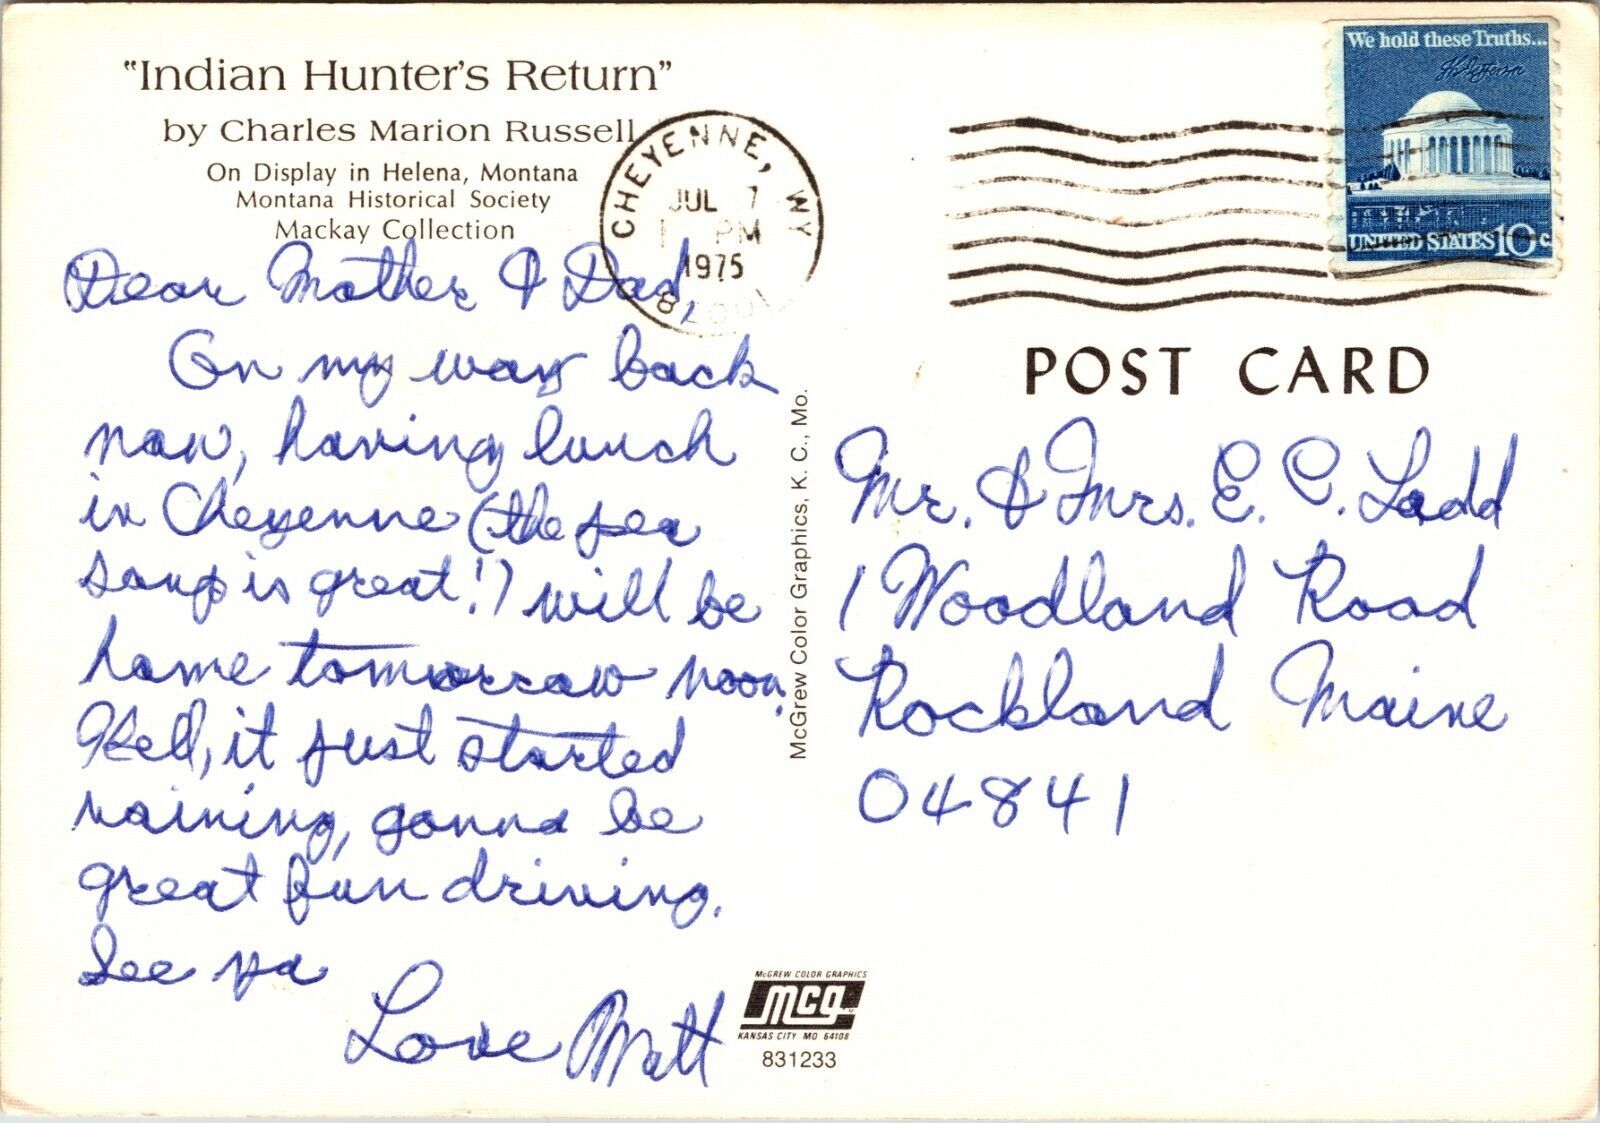 "Indian Hunter's Return"
by Charles Marion Russell
On Display in Helena, Montana
Montana Historical Society
Mackay Collection
CHEYENNE, WY
JUL 7
PM
1975
We hold these Truths...
UNITED STATES 10c
POST CARD
Dear Mother & Dad,
On my way back
now, having lunch
in Cheyenne (the pea
soup is great!) will be
home tomorrow noon.
Well, it just started
raining, gonna be
great fun driving.
See ya
Love Matt
McGrew Color Graphics, K. C., Mo.
Mr. & Mrs. E. C. Ladd
1 Woodland Road
Rockland Maine
04841
McGREW COLOR GRAPHICS
mcg
KANSAS CITY MO 64108
831233